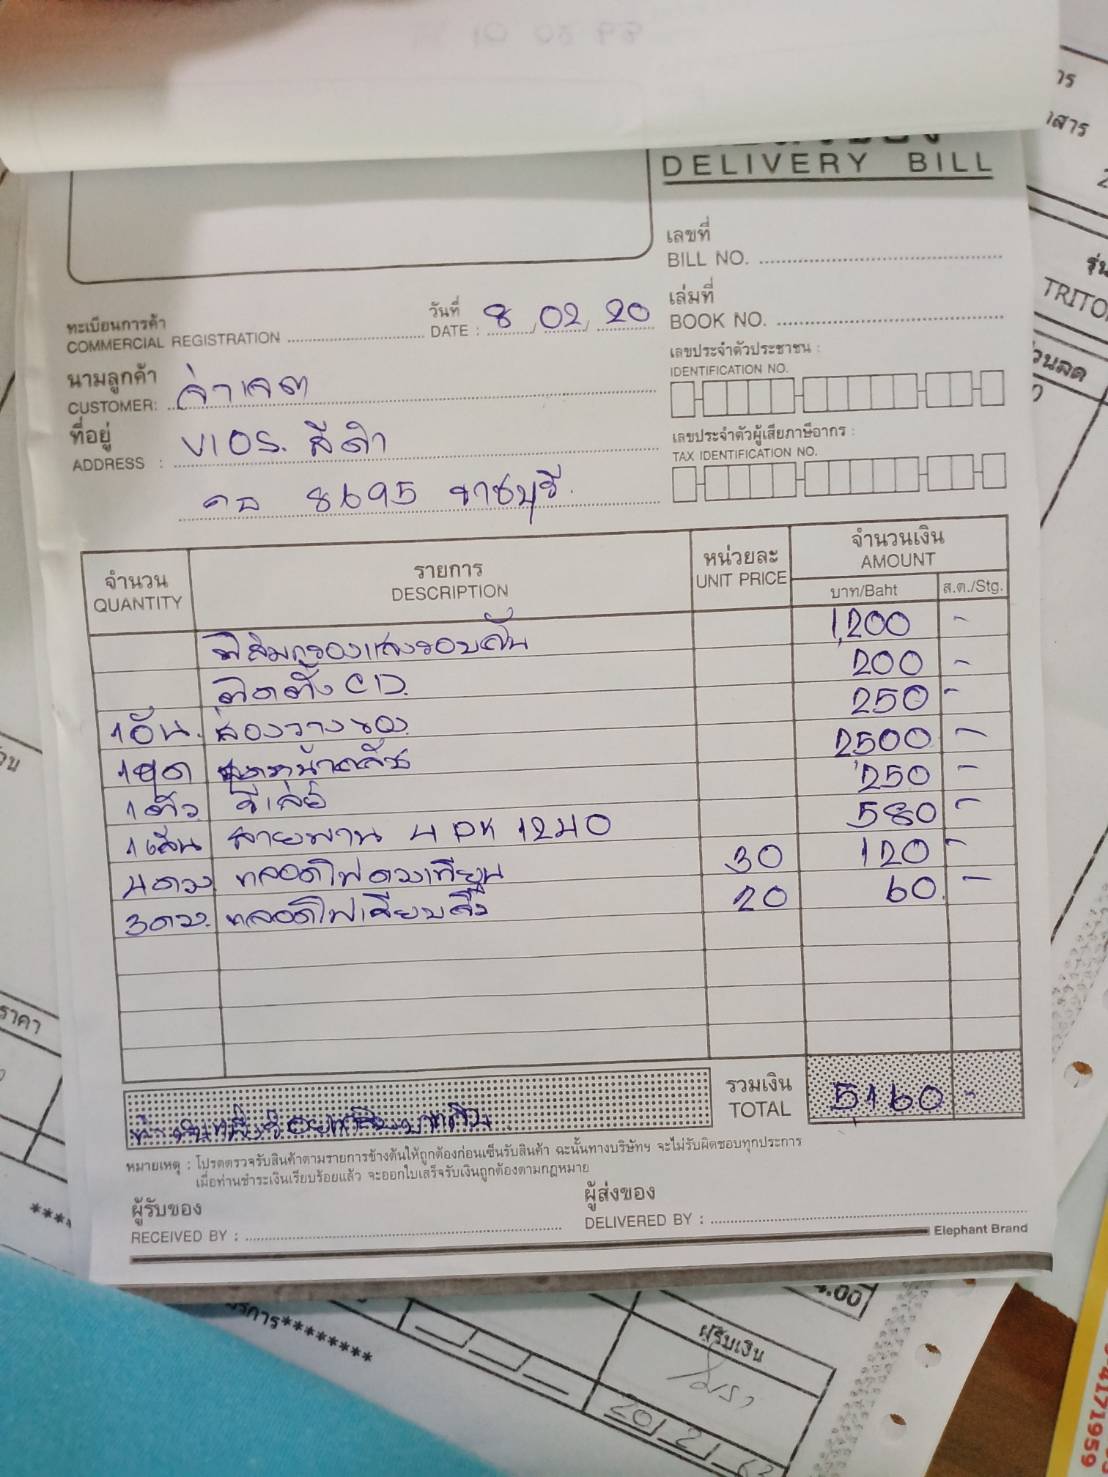 DELIVERY BILL
เลขที่
BILL NO.
ทะเบียนการค้า
COMMERCIAL REGISTRATION
วันที่
DATE : 8, 02, 20
เล่มที่
BOOK NO.
นามลูกค้า
CUSTOMER: จ่าเจต
เลขประจำตัวประชาชน :
IDENTIFICATION NO.
ที่อยู่
ADDRESS : VIOS. สีดำ
กอ 8695 ราชบุรี.
เลขประจำตัวผู้เสียภาษีอากร :
TAX IDENTIFICATION NO.
จำนวน
QUANTITY
รายการ
DESCRIPTION
หน่วยละ
UNIT PRICE
จำนวนเงิน
AMOUNT
บาท/Baht ส.ต./Stg.
ฟิล์มกรองแสงรอบคัน 1,200 -
ติดตั้ง CD. 200 -
1อัน. ช่องวางของ 250 -
1ชุด หน้าคลัช 2500 -
1ตัว รีเลย์ 250 -
1เส้น สายพาน 4 PK 1240 580 -
4ดวง หลอดไฟดวงเทียน 30 120 -
3ดวง. หลอดไฟเสียบ 20 60. -
รวมเงิน
TOTAL 5160 -
หมายเหตุ : โปรดตรวจรับสินค้าตามรายการข้างต้นให้ถูกต้องก่อนเซ็นรับสินค้า ฉะนั้นทางบริษัทฯ จะไม่รับผิดชอบทุกประการ
เมื่อท่านชำระเงินเรียบร้อยแล้ว จะออกใบเสร็จรับเงินถูกต้องตามกฎหมาย
ผู้รับของ
RECEIVED BY :
ผู้ส่งของ
DELIVERED BY :
Elephant Brand
TRITO
ราคา
4.00
ผู้รับเงิน
4171959